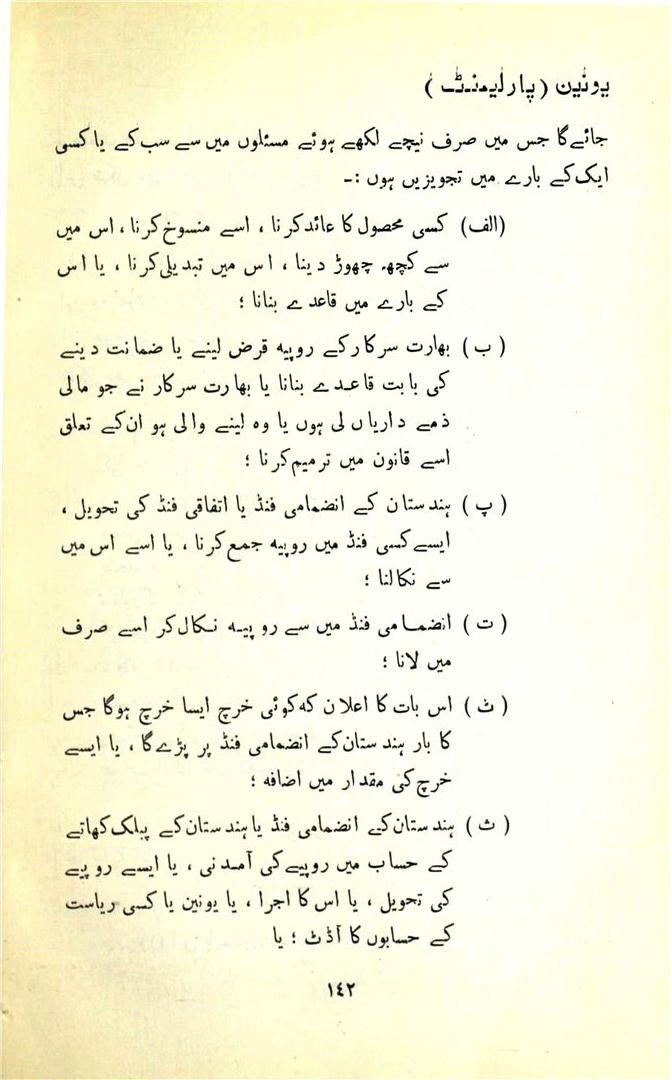 یونین (پارلیمنٹ)
جائے گا جس میں صرف نیچے لکھے ہوئے مسئلوں میں سے سب کے یا کسی
ایک کے بارے میں تجویزیں ہوں :۔
(الف) کسی محصول کا عائد کرنا ، اسے منسوخ کرنا ، اس میں
سے کچھ چھوڑ دینا ، اس میں تبدیلی کرنا ، یا اس
کے بارے میں قاعدے بنانا ؛
(ب) بھارت سرکار کے روپیہ قرض لینے یا ضمانت دینے
کی بابت قاعدے بنانا یا بھارت سرکار نے جو مالی
ذمے داریاں لی ہوں یا وہ لینے والی ہو ان کے تعلق
اسے قانون میں ترمیم کرنا ؛
(پ) ہندستان کے انضمامی فنڈ یا اتفاقی فنڈ کی تحویل ،
ایسے کسی فنڈ میں روپیہ جمع کرنا ، یا اسے اس میں
سے نکالنا ؛
(ت) انضمامی فنڈ میں سے روپیہ نکال کر اسے صرف
میں لانا ؛
(ٹ) اس بات کا اعلان کہ کوئی خرچ ایسا خرچ ہوگا جس
کا بار ہندستان کے انضمامی فنڈ پر پڑے گا ، یا ایسے
خرچ کی مقدار میں اضافہ ؛
(ث) ہندستان کے انضمامی فنڈ یا ہندستان کے پبلک کھاتے
کے حساب میں روپیے کی آمدنی ، یا ایسے روپیے
کی تحویل ، یا اس کا اجرا ، یا یونین یا کسی ریاست
کے حسابوں کا آڈٹ ؛ یا
١٤٢